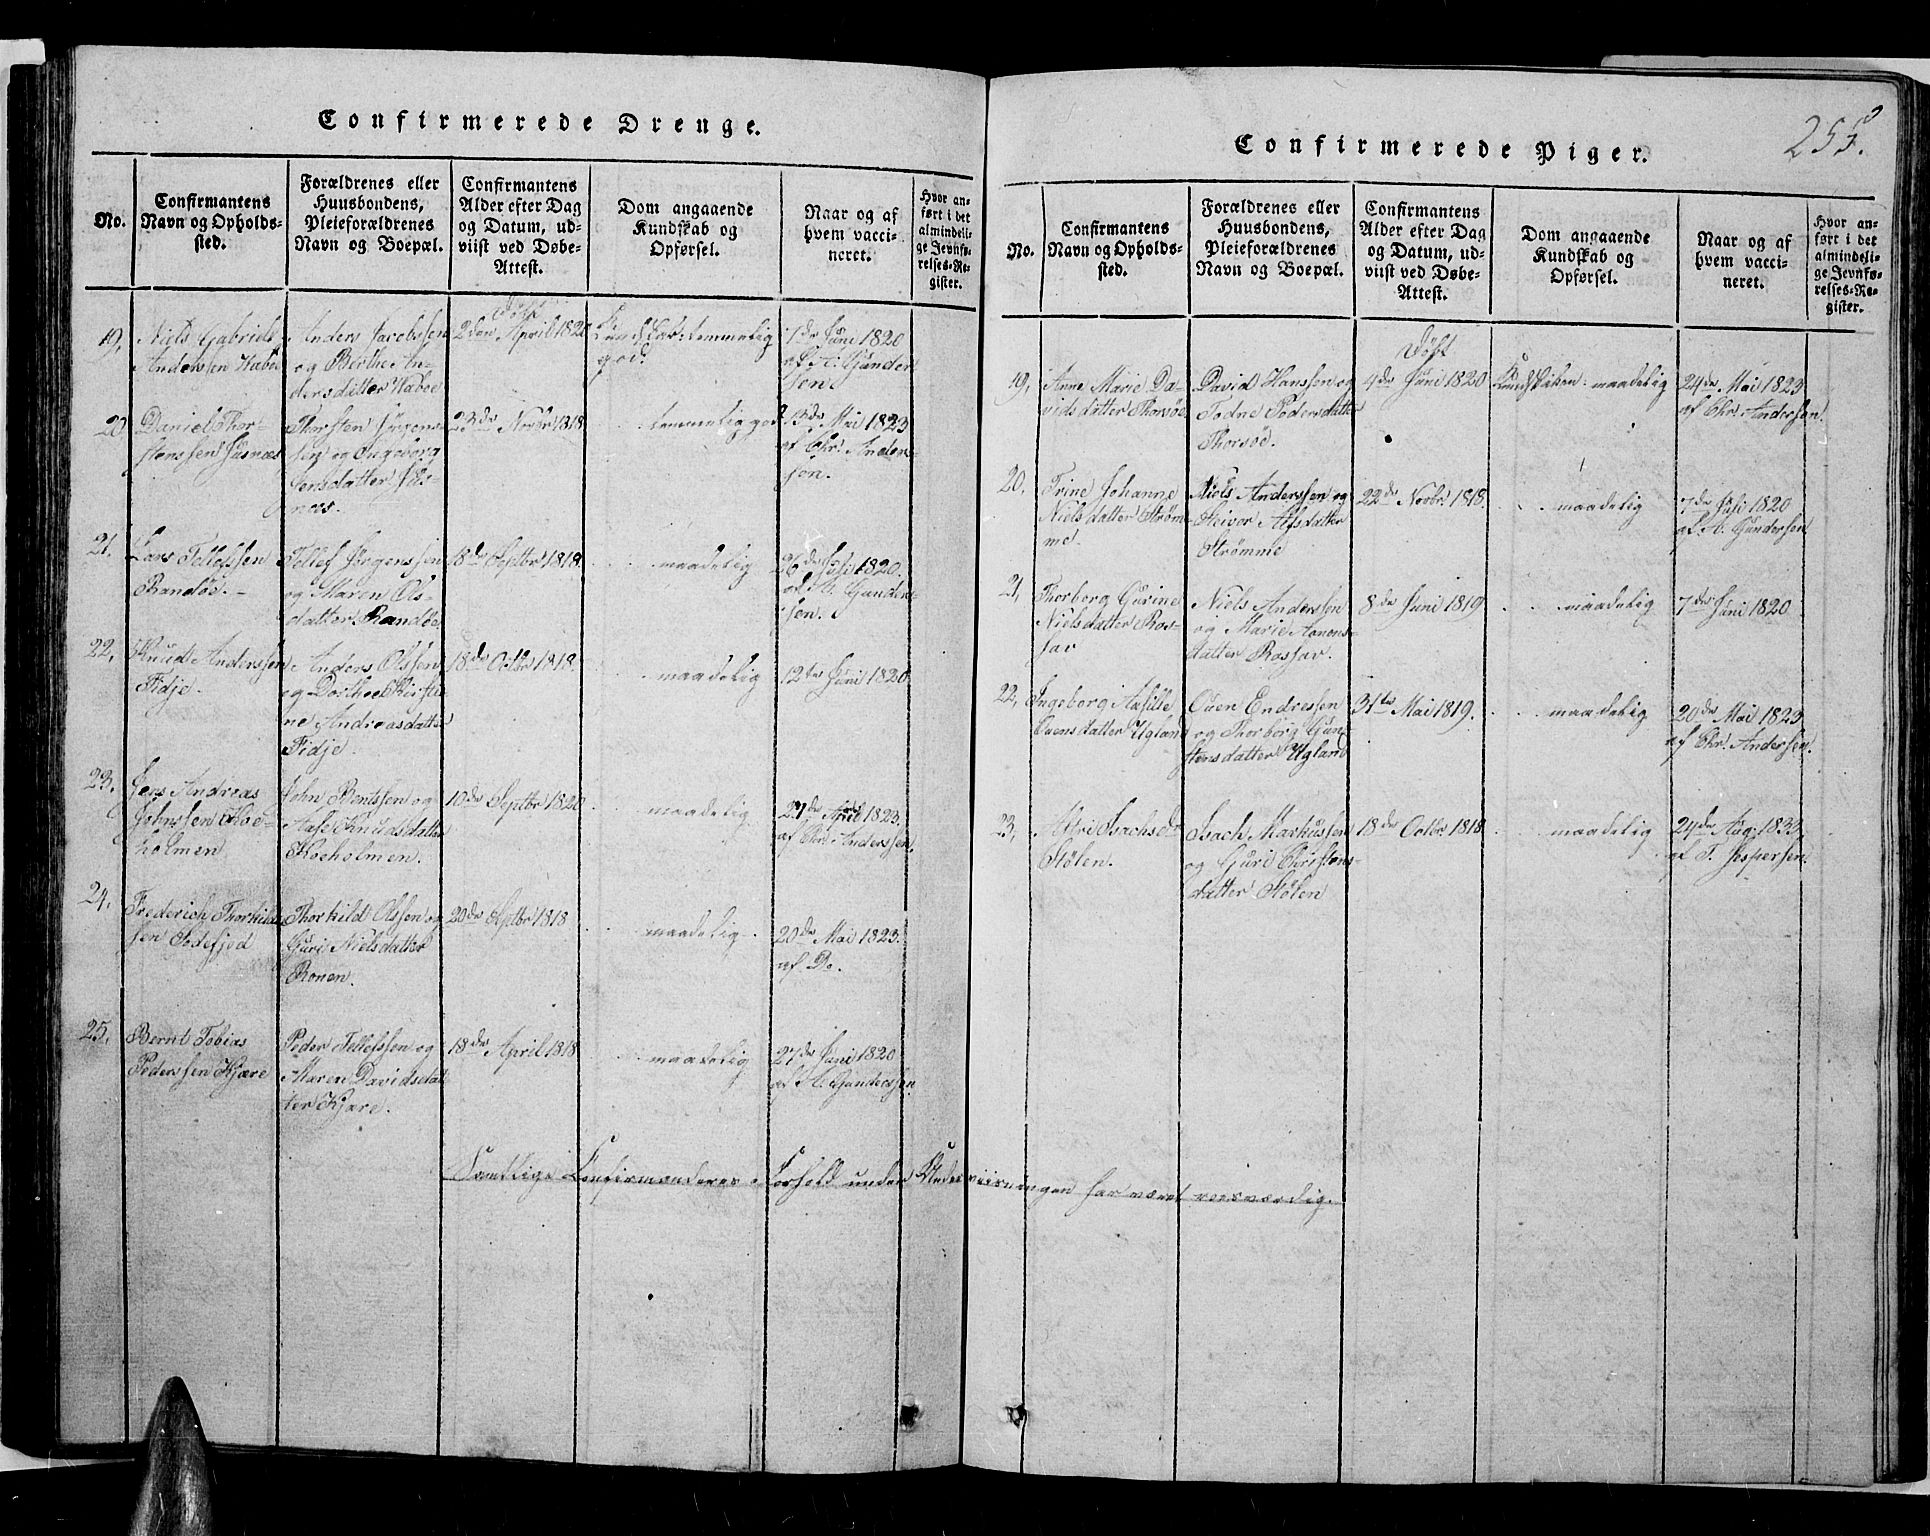 Confirmerede Drenge.
No.
Confirmantens
Navn og Opholds-
sted.
Forældrenes eller
Huusbondens,
Pleieforældrenes
Navn og Boepæl.
Confirmantens
Alder efter Dag
og Datum, ud-
viist ved Døbe-
Attest.
Dom angaaende
Kundskab og
Opførsel.
Naar og af
hvem vacci-
neret.
Hvor an-
ført i det
almindeli-
ge Jevnfø-
relses-Re-
gister.
19.
Niels Gabriel
Anderssen
Anders Jacobssen
og Berthe An-
dersdatter
døbt
2den April 1820
Kundskab: temmelig
god.
1de Juni 1820
af A. Gunder
sen
20
Daniel Thor-
stenssen Jusnæs
Thorsten Jørgens-
sen og Ingeborg
Jensdatter Jus-
næs.
23de Novbr 1818
temmelig god
13de Mai 1823
af Chr. Anders-
sen.
21.
Lars Tellefssen
Randøe.
Tellef Jørgenssen
og Maren Ols-
datter Randøe
18de Septbr 1818
maadelig
26de Juli 1820.
af A. Gunder-
sen.
22,
Knud Anderssen
Fidje.
Anders Olssen
og Dorthea Kirsti-
ne Andreasdatter
Fidje.
18de Octbr 1818
maadelig
12te Juni 1820
23.
Jens Andreas
Johnssen Koe-
holmen
John Berntssen og
Aase Knudsdatter
Koeholmen.
10de Septbr 1820
maadelig
21de April 1823.
af Chr. Anderssen.
24.
Frederich Thorkild-
sen Todefjed
Thorkild Olssen og
Guri Nielsdatter
Ronen.
20de Septbr 1818
maadelig
20de Mai 1823.
af Do.
25.
Bernt Tobias
Pederssen Kjære
Peder Tellefssen og
Maren Davidsdat
ter Kjære.
18de April 1818
maadelig
27de Juni 1820
af A. Gunderssen
Samtlige Confirmanderes Forhold under Underviisningen har været roesværdig.
255.
Confirmerede Piger.
No.
Confirmantens
Navn og Opholds-
sted.
Forældrenes eller
Huusbondens,
Pleieforældrenes
Navn og Boepæl.
Confirmantens
Alder efter Dag
og Datum, ud-
viist ved Døbe-
Attest.
Dom angaaende
Kundskab og
Opførsel.
Naar og af
hvem vacci-
neret.
Hvor an-
ført i det
almindeli-
ge Jevnfø-
relses-Re-
gister.
19.
Anne Marie Da-
vidsdatter Thorsøe
David Hanssen og
Todne Pedersdatter
Thorsøe.
Døbt
4de Juni 1820
Kundskaben: maadelig
24de Mai 1823
af Chr. Andersen.
20.
Trine Johanne
Nielsdatter Strøm-
me.
Niels Anderssen og
Steivor Alfsdatter
Strømme
22de Novbr 1818.
maadelig
7de Juli 1820
af A. Gundersen
21.
Thorborg Gurine
Nielsdatter Ros-
sav
Niels Anderssen
og Marie Aanons-
datter Rossav.
8de Juni 1819
maadelig
7de Juni 1820
22.
Ingeborg Axsille
Ouensdatter Ugland
Ouen Endressen
og Thorborg Gun-
stensdatter Ugland
31te Mai 1819.
maadelig
20de Mai 1823
af Chr. Andersen.
23.
Stølen.
Isach Markussen
og Guri Christens-
datter Stølen
18de Octbr 1818
maadelig
24de Aug. 1833
af T. Jespersen.